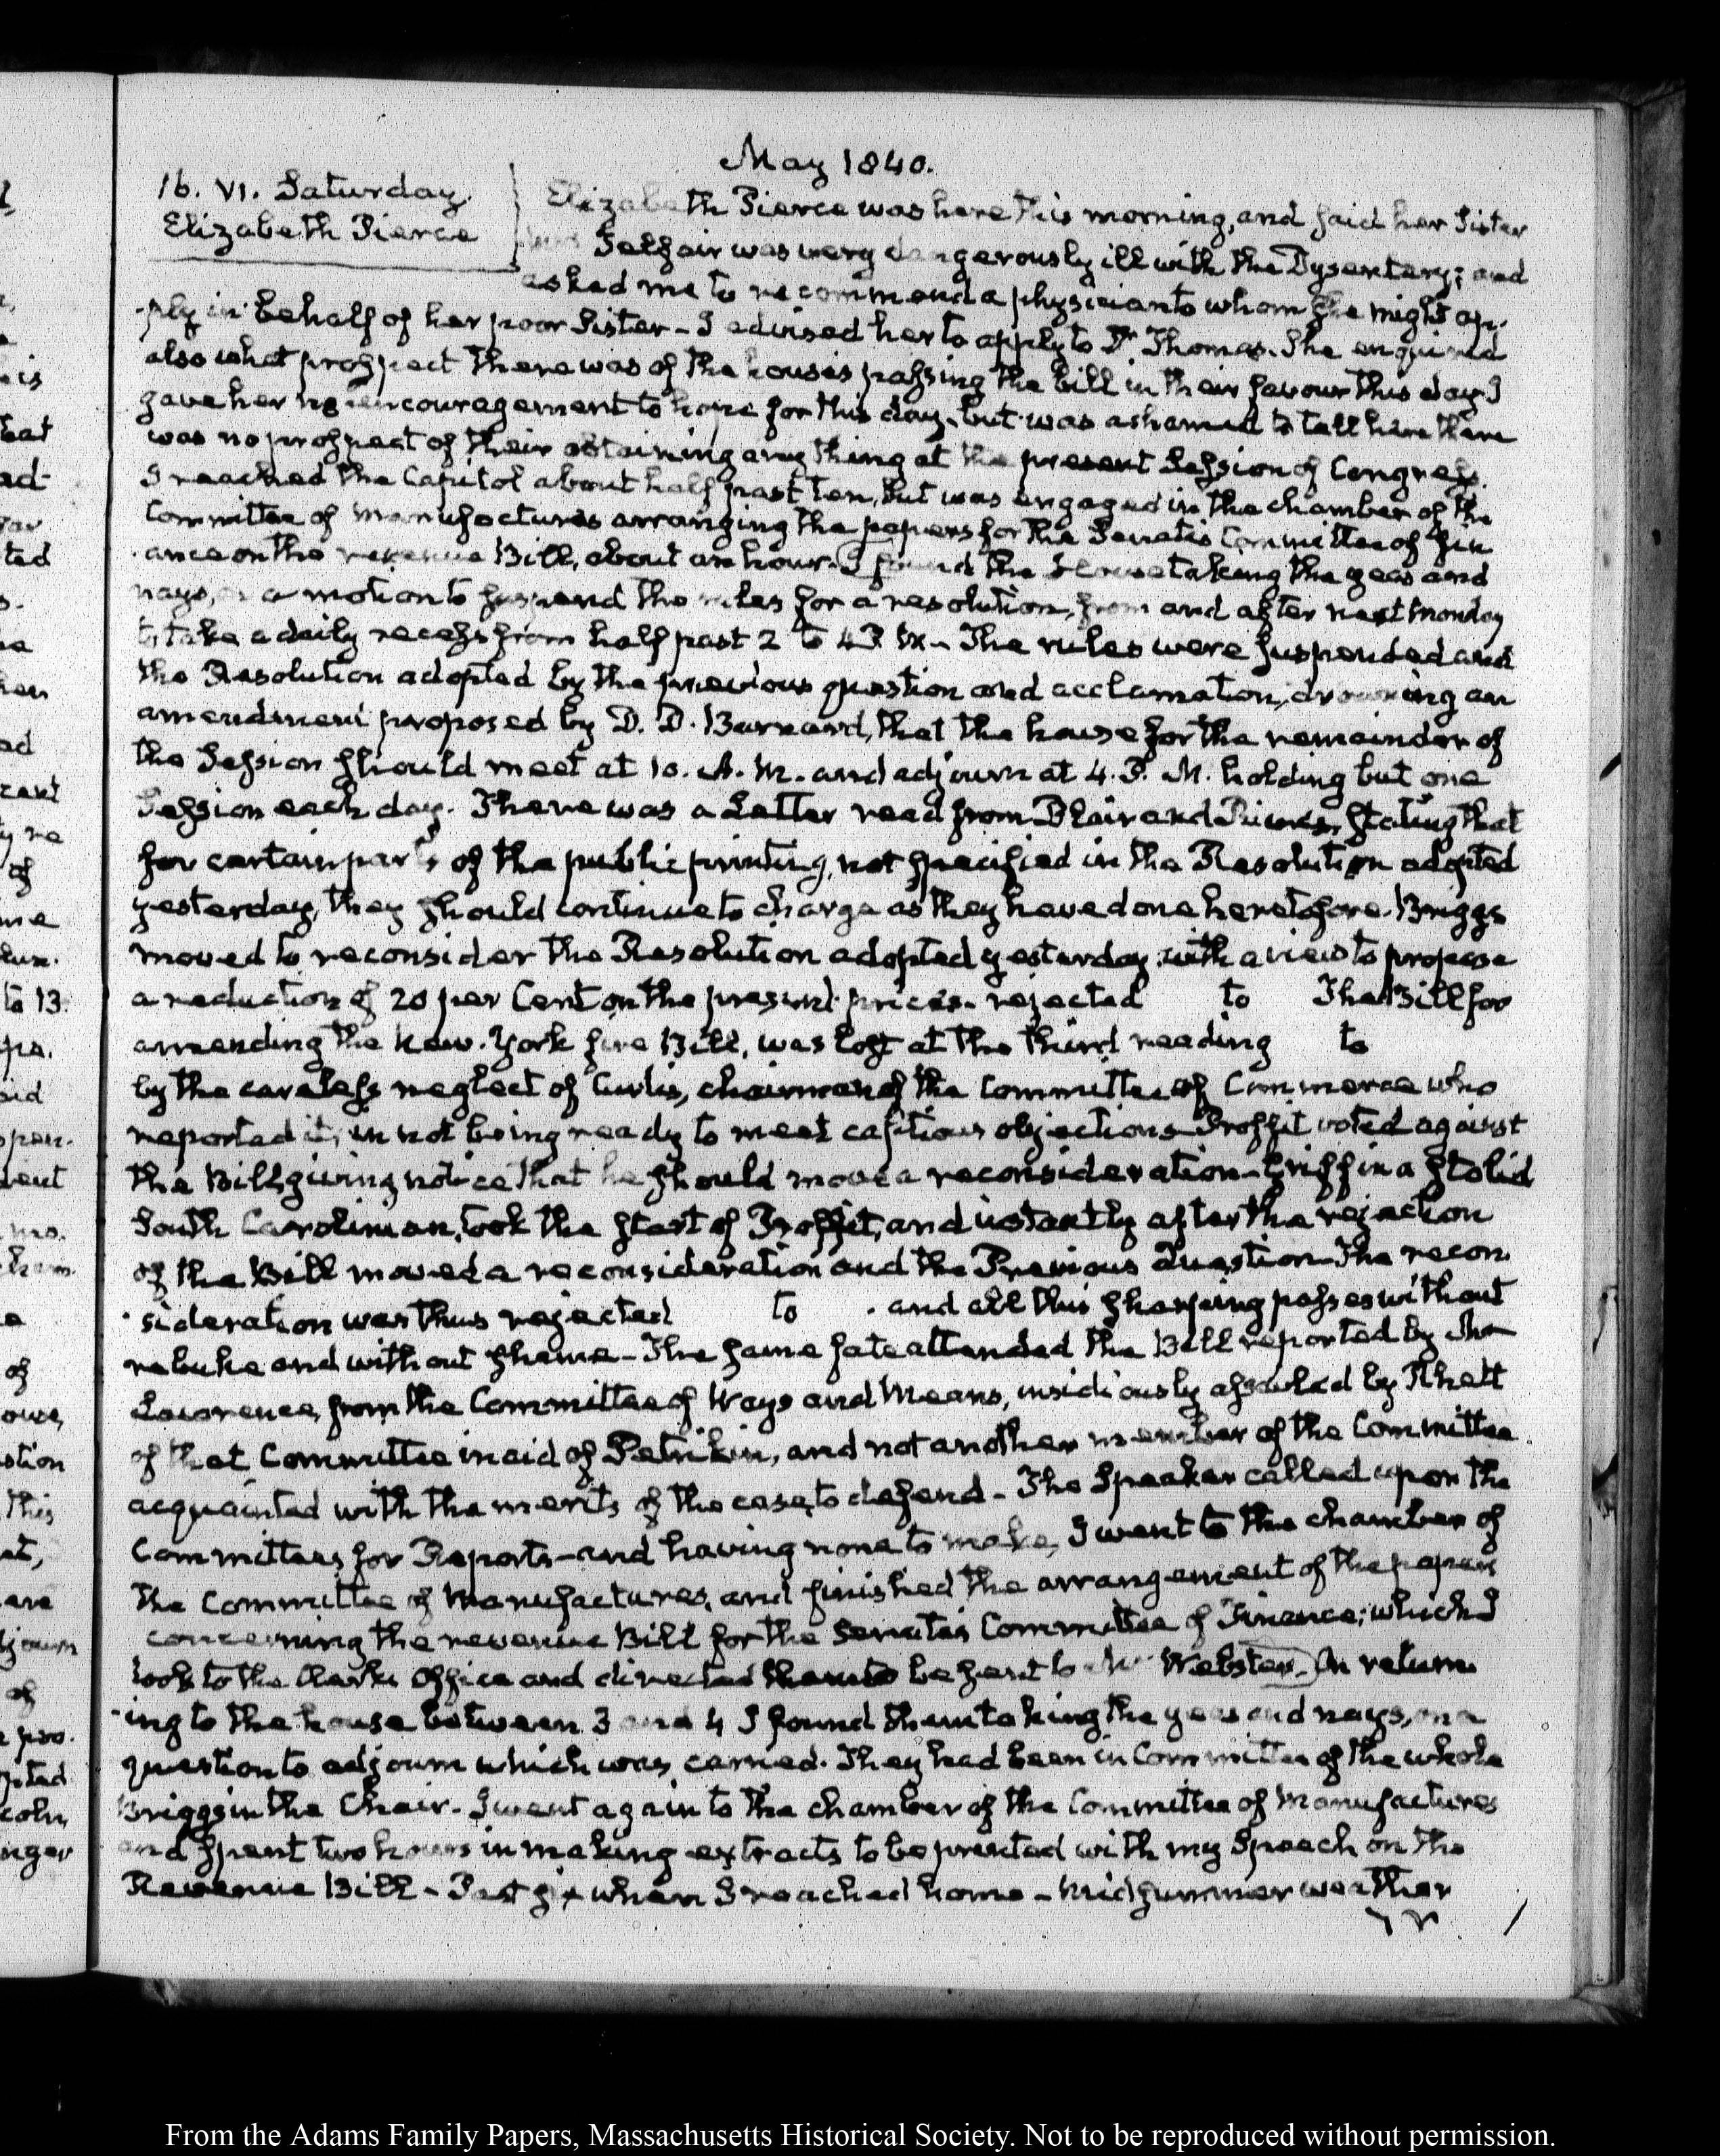 May 1840.
16. VI. Saturday.
Elizabeth Pierce
Elizabeth Pierce was here this morning, and said her Sister
Telfair was very dangerously ill with the Dysentery; and
asked me to recommend a physician to whom she might ap-
-ply in behalf of her poor Sister - I advised her to apply to Dr. Thomas. She enquired
also what prospect there was of the houses passing the bill in their favour this day. I
gave her no encouragement to hope for this day, but was ashamed to tell her there
was no prospect of their obtaining any thing at the present Session of Congress.
I reached the Capitol about half past ten, but was engaged in the chamber of the
Committee of Manufactures arranging the papers for the Senate's Committee of Fin
-ance on the revenue Bill, about an hour. I found the House taking the yeas and
nays, on a motion to suspend the rules for a resolution, from and after next Monday
to take a daily recess from half past 2 to 4 P. M. - The rules were suspended and
the Resolution adopted by the previous question and acclamation, drowning an
amendment proposed by D. D. Barnard, that the house for the remainder of
the Session should meet at 10. A. M. and adjourn at 4. P. M. holding but one
Session each day. There was a Letter read from Blair and Rives, stating that
for certain parts of the public printing, not specified in the Resolution adopted
yesterday, they should continue to charge as they have done heretofore. Briggs
moved to reconsider the Resolution adopted yesterday, with a view to propose
a reduction of 20 per Cent on the present prices. rejected to The Bill for
amending the New-York fire Bill, was lost at the third reading to
by the careless neglect of Curtis, chairman of the Committee of Commerce who
reported it, in not being ready to meet captious objections - Proffit voted against
the Bill giving notice that he should move a reconsideration - Griffin a stolid
South Carolinian, took the start of Proffit, and instantly after the rejection
of the Bill moved a reconsideration and the Previous Question - The recon
-sideration was thus rejected to . and all this sharping passes without
rebuke and without shame - The same fate attended the Bill reported by Mr
Lawrence, from the Committee of Ways and Means, insidiously assailed by Rhett
of that Committee in aid of Petrikin, and not another member of the Committee
acquainted with the merits of the case, to defend - The Speaker called upon the
Committees for Reports - and having none to make, I went to the chamber of
the Committee of Manufactures, and finished the arrangement of the papers
concerning the revenue Bill for the Senate's Committee of Finance; which I
took to the Clerks Office and directed them to be sent to Mr Webster. On return
-ing to the house between 3 and 4 I found them taking the yeas and nays, on a
question to adjourn which was carried. They had been in Committee of the whole
Briggs in the Chair. I went again to the chamber of the Committee of Manufactures
and spent two hours in making extracts to be printed with my Speech on the
Revenue Bill - Past six when I reached home - Midsummer weather
From the Adams Family Papers, Massachusetts Historical Society. Not to be reproduced without permission.